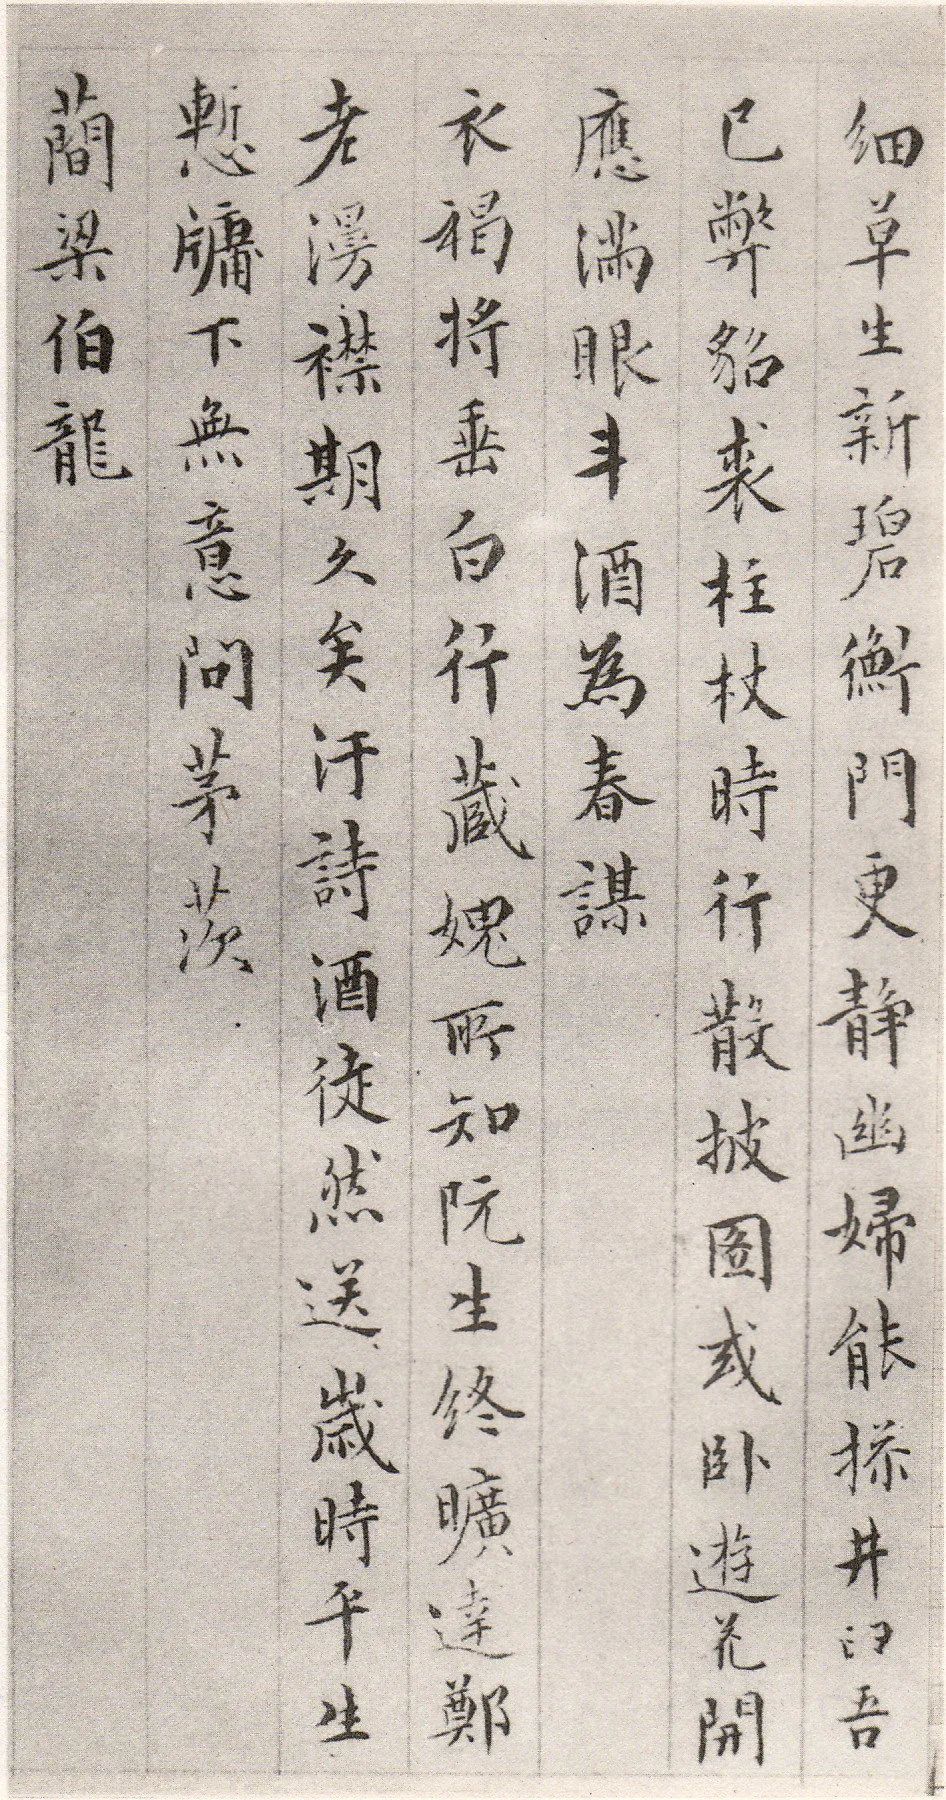 细草生新碧衡門更静幽婦能操井臼吾
已弊貂裘柱杖時行散披圖或卧遊花開
應滿眼斗酒為春謀
衣褐将垂白行蔵媿所知阮生終曠達鄭
老漫襟期久矣汙詩酒徒然送歲時平生
慙牗下無意問茅茨
蕳梁伯龍